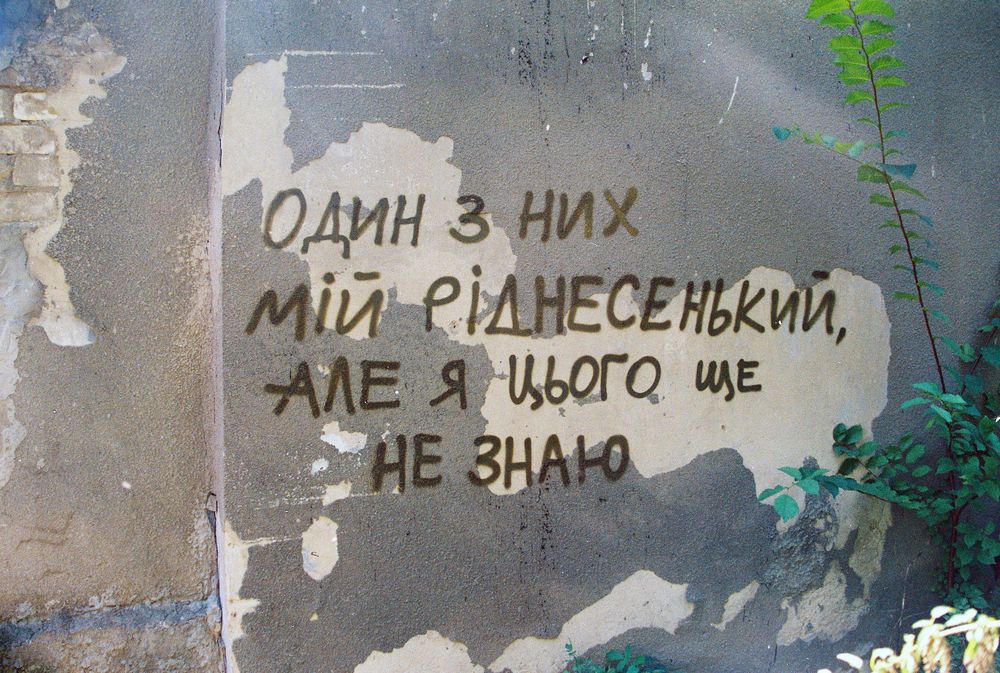 ОДИН З НИХ
МІЙ РІДНЕСЕНЬКИЙ,
АЛЕ Я ЦЬОГО ЩЕ
НЕ ЗНАЮ